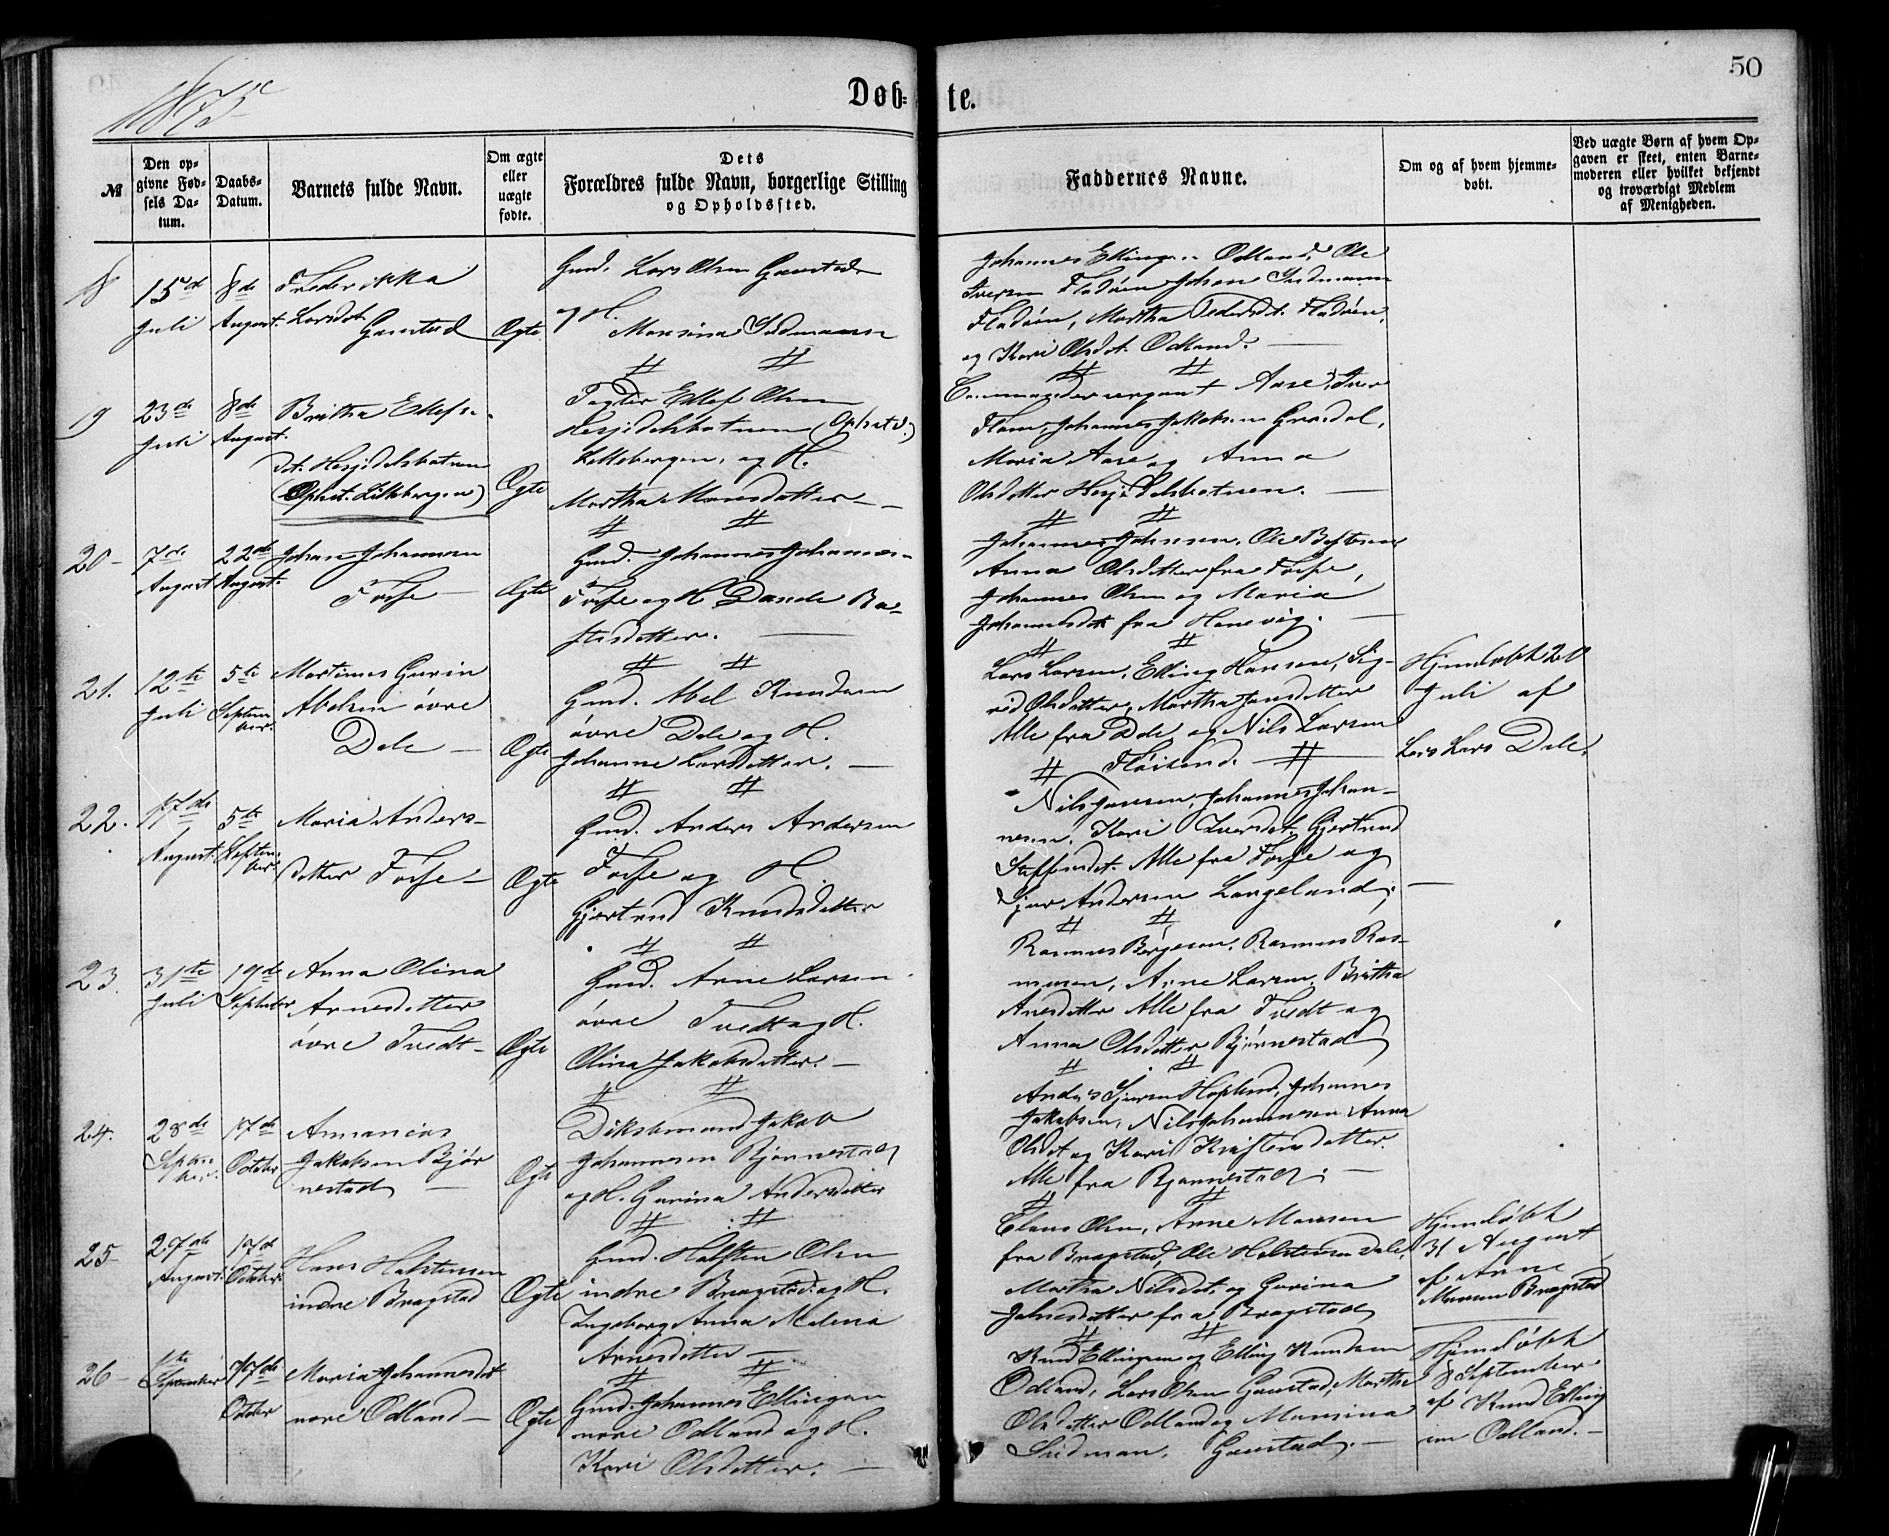 50
1875
Døb- te.
№
Den op-
givne Fød-
sels Da-
tum.
Daabs-
Datum.
Barnets fulde Navn.
Om ægte
eller
uægte
fødte.
Dets
Forældres fulde Navn, borgerlige Stilling
og Opholdssted.
Faddernes Navne.
Om og af hvem hjemme-
døbt.
Ved uægte Børn af hvem Op-
gaven er skeet, enten Barne-
moderen eller hvilket bekjendt
og troværdigt Medlem
af Menigheden.
18
15de
Juli
8de
August.
Frederikka
Larsdat.
Gaustad
Ægte
Gmd. Lars Olsen Gaustad
og H.
Monsina Sudmann
Johannes Ellingsen Odland, Ole
Iversen Fladøen Johan Sudmann
Fladøen, Martha Pedersdt. Fladøen,
og Kari Olsdat. Odland.
19
23de
Juli
8de
August.
Britha Ellefs-
dat. Hesjedalsbotnen
(Ophst. Lillebergen)
Ægte
Ellef Olsen
Hesjedalsbotnen (Ophst.
Lillebergen, og H.
Martha Monsdatter
Aase, Iver
Johannes Jakobsen
Maria Aase og Anna
Olsdatter Hesjedalsbotnen.
20
7de
August
22de
August.
Johan Johannesen
Fosse
Ægte
Gmd. Johannes Johannes-
Fosse og H.
Johannes Johnsen, Ole
Anna Olsdatter fra Fosse,
Johannes Olsen og Maria
Johannesdat fra
21.
12te
Juli
5te
Septem-
ber.
Martinus Gurin
Abelsen øvre
Dale
Ægte
Gmd. Abel Knudsen
øvre Dale og H.
Johanne Larsdatter.
Lars Larsen, Elling Hansen, Sig-
rid Olsdatter, Martha Jansdatter
Alle fra Dale, og Nils Larsen
Hjemdøbt 20
Juli af
Lars Lars Dale.
22.
17de
August.
5te
Septem-
ber
Maria Anders-
datter Fosse
Ægte
Gmd. Anders Andersen
Fosse og H.
Gjertrud Knudsdatter
Nils Johannes Johan-
nesen, Kari Iversdt. Gjertrud
Steffensdt. Alle fra Fosse og
Sjur Andersen Langeland.
23.
31te
Juli
19de
September
Anna Olina
Arnesdatter
øvre Tvedt
Ægte
Gmd. Arne Larsen
øvre Tvedt og H.
Olina Jakobsdatter.
Rasmus Børgesen, Rasmus Ras-
musen, Arne Larsen, Britha
Alle fra Tvedt og
Anna Olsdatter Bjørnestad
24.
28de
September.
17de
October
Annanias
Jakobsen Bjør-
nestad
Ægte
Jakob
Johannesen Bjørnestad
og H. Gurina Andersdatter
Anders Sjursen Hopland, Johannes
Jakobsen, Nils Johannesen Anna
Olsdt og Kari Kristensdatter.
Alle fra Bjørnestad.
25
27de
August.
17de
October
Hans Halstensen
indre Bragstad
Ægte
Gmd. Halsten Olsen
indre Bragstad og H.
Ingeborg Anna Malena
Arnesdatter
Claus Olsen, Arne Monsen
fra Bragstad, Ole Halstensen Dale,
Martha Nilsdt. og Gurina
Johnesdatter fra Bragstad
Hjemdøbt
31 August
af Arne
Monsen Bragstad
26
1te
September
17de
October
Maria Johannesdat
nore Odland
Ægte
Gmd. Johannes Ellingsen
nore Odland og H.
Kari Olsdatter.
Knud Ellingsen og Elling Knudsen
Odland, Lars Olsen Gaustad, Martha
Olsdatter Odland og Monsina
Sudman, Gaustad.
Hjemdøbt
8 September
af Knud Elling
sen Odland.